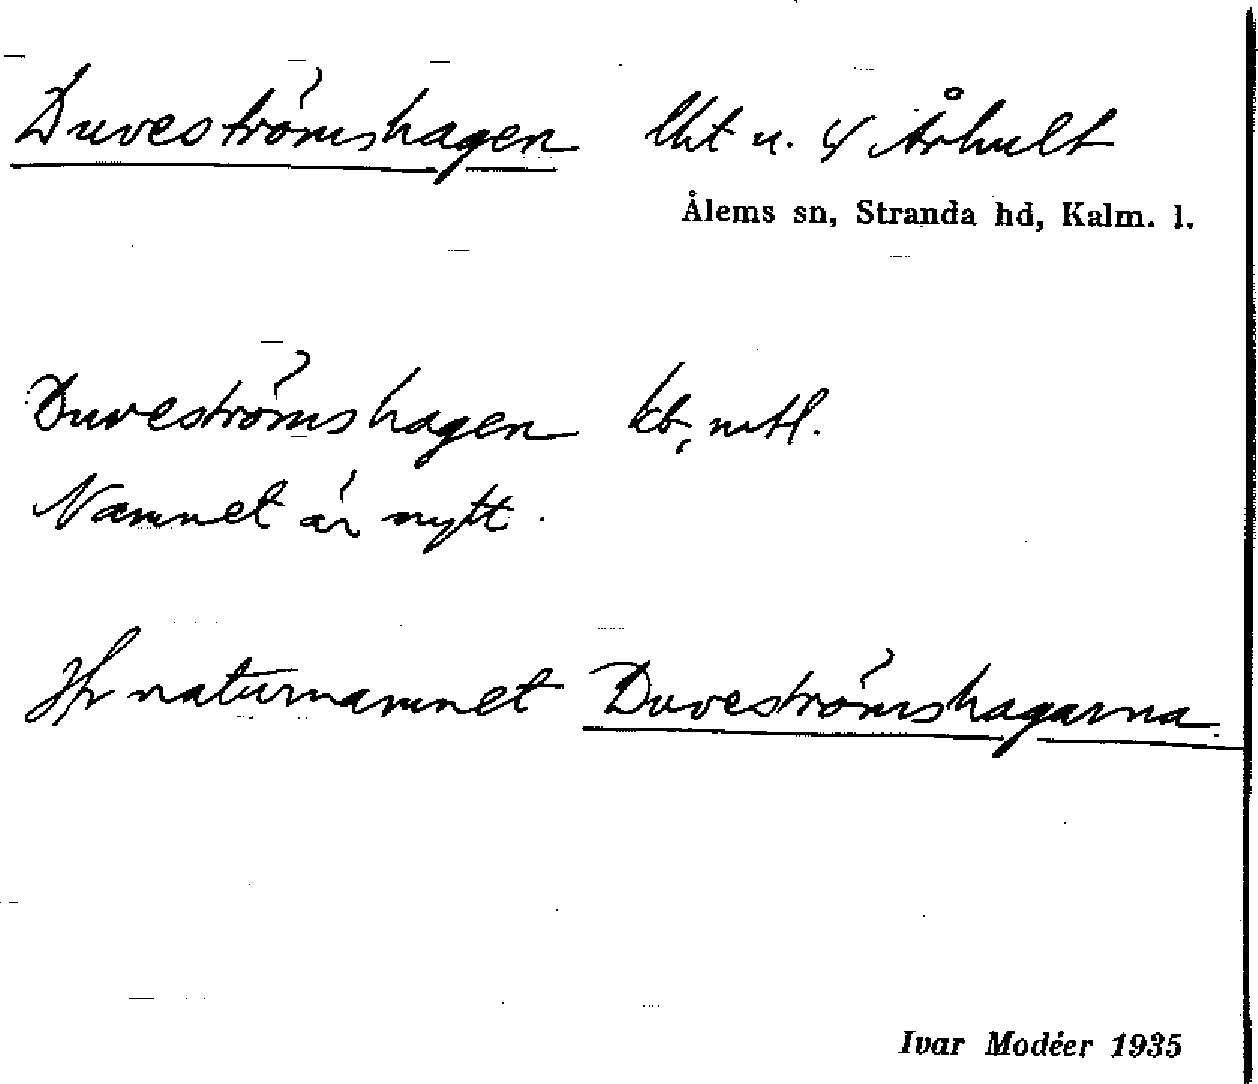 Duveströmshagen lht u. Århult
Ålems sn, Stranda hd, Kalm. l.
Duveströmshagen kb, mtl.
Namnet är nytt.
Jfr naturnamnet Duveströmshagarna.
Ivar Modéer 1935